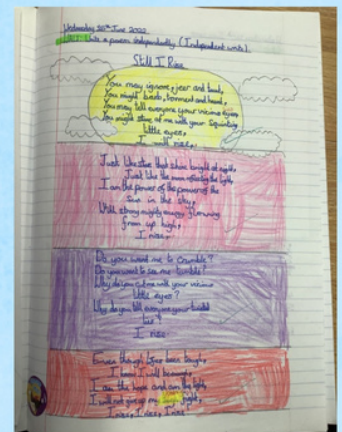 Wednesday 20th June 2022
to write a poem independently (Independent write).
Still I Rise
You may ignore, jeer and taunt,
You might bark, torment and haunt,
You may tell everyone your vicious
You might stare at me with your squinting
little eyes,
I will rise.
Just like stars that shine bright at night,
Just like the moon the light,
I am the power of the power of the
sun in the sky,
With strong mighty energy glowing
from up high,
I rise.
Do you want me to crumble?
Do you want to see me tumble?
Why do you me with your vicious
little eyes?
Why do you tell everyone your twisted
lies?
I rise.
Even though been tough,
I know I will be enough,
I am the hope and am the light,
I will not give up my right,
I rise, I rise, I rise